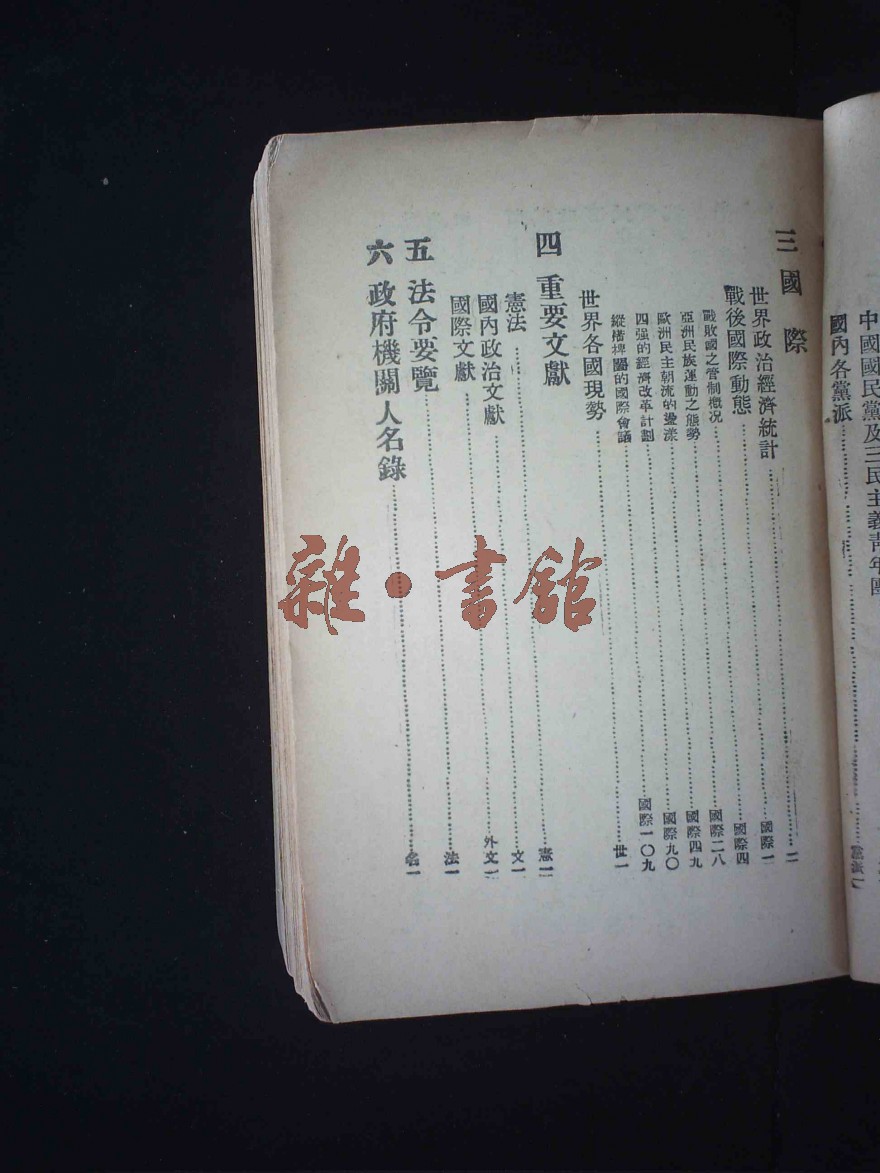 中國國民黨及三民主義靑年團
國內各黨派
三 國際
世界政治經濟統計 國際一
戰後國際動態 國際四
戰敗國之管制概况 國際二八
亞洲民族運動之態勢 國際四九
歐洲民主朝流的盪漾 國際九〇
四强的經濟改革計劃 國際一〇九
縱橫捭闔的國際會議
世界各國現勢 世一
四 重要文獻
憲法 憲一
國內政治文獻 文一
國際文獻 外文一
五 法令要覽 法一
六 政府機關人名錄 名一
雜·書館